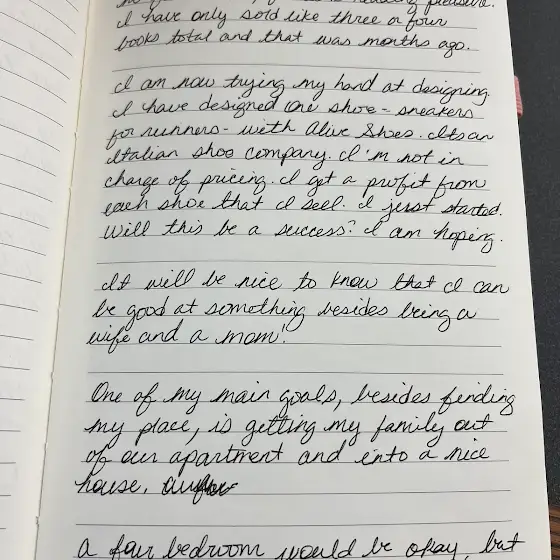 reading pleasure.
I have only sold like three or four
books total and that was months ago.
I am now trying my hand at designing.
I have designed one shoe - sneakers
for runners - with Alive Shoes. Its an
Italian shoe company. I'm not in
charge of pricing. I get a profit from
each shoe that I sell. I just started.
Will this be a success? I am hoping.
It will be nice to know that I can
be good at something besides being a
wife and a mom!
One of my main goals, besides finding
my place, is getting my family out
of our apartment and into a nice
house.
a four bedroom would be okay, but